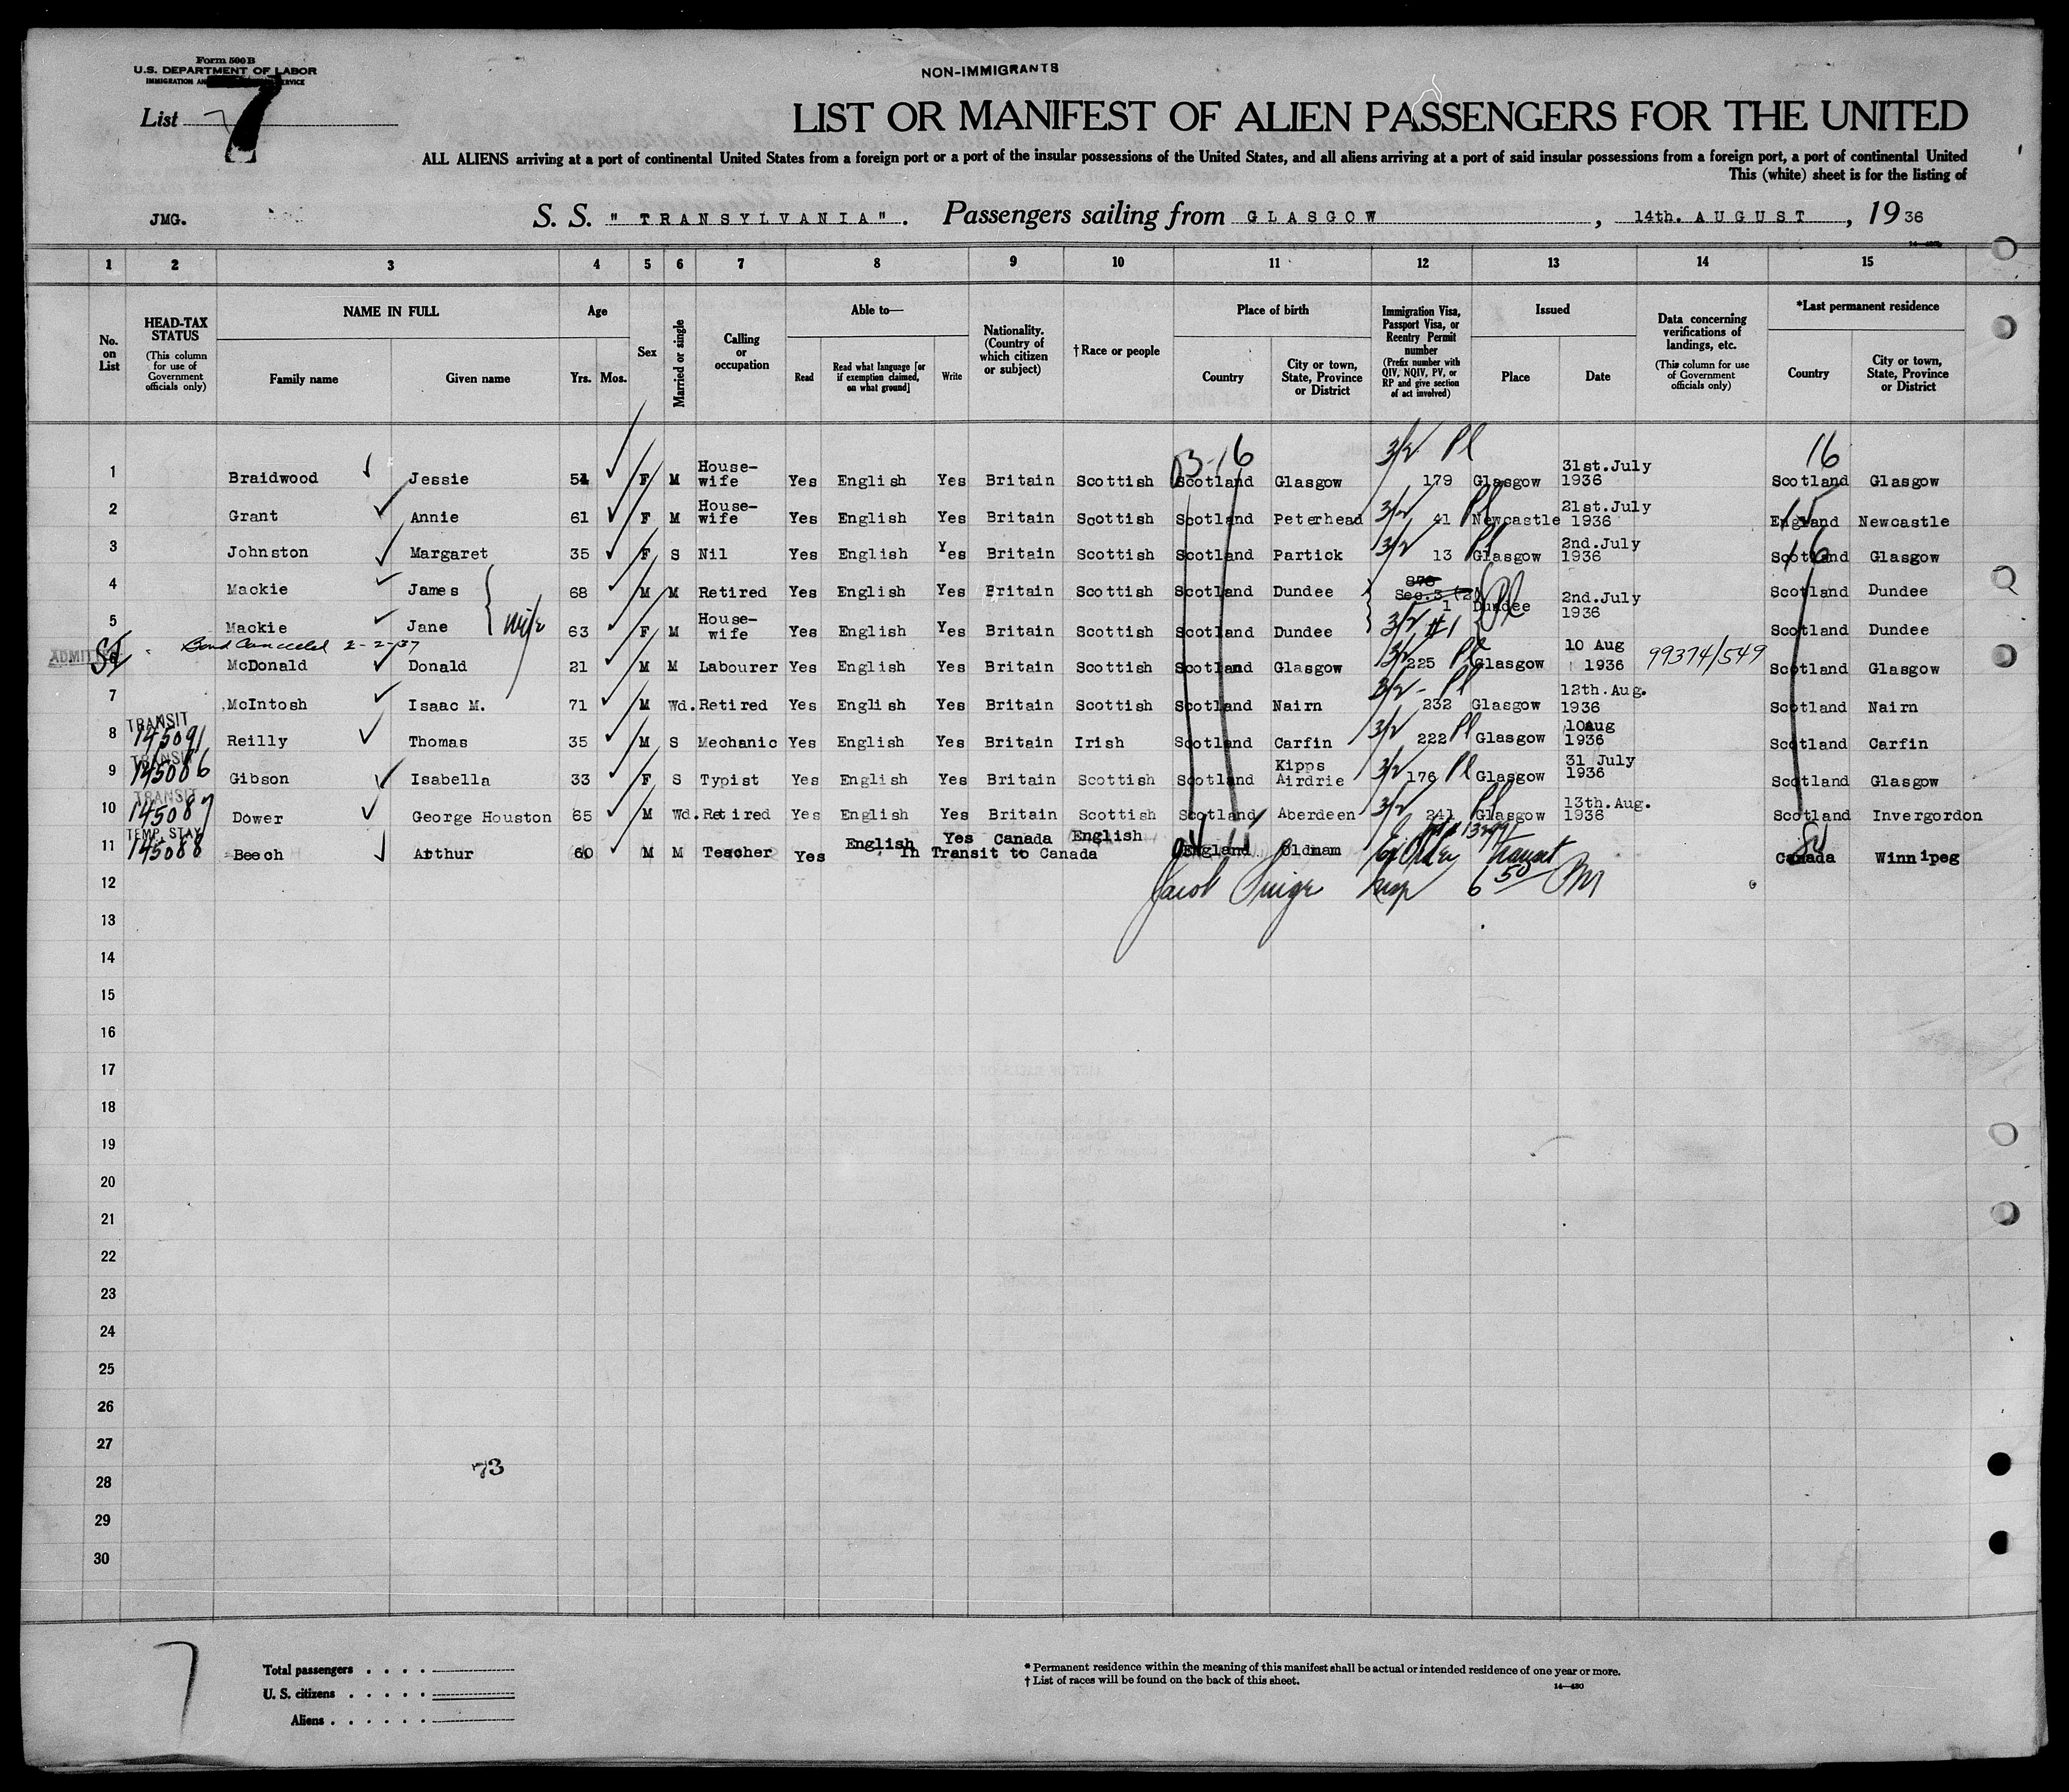 Form 500 B
U.S. DEPARTMENT OF LABOR
IMMIGRATION AND SERVICE
NON-IMMIGRANTS
List 7
7
LIST OR MANIFEST OF ALIEN PASSENGERS FOR THE UNITED
ALL ALIENS arriving at a port of continental United States from a foreign port or a port of the insular possessions of the United States, and all aliens arriving at a port of said insular possessions from a foreign port, a port of continental United
This (white) sheet is for the listing of
JMG. S. S. "TRANSYLVANIA". Passengers sailing from GLASGOW, 14th. AUGUST, 1936
1 2 3 4 5 6 7 8 9 10 11 12 13 14 15
No. on List
HEAD-TAX STATUS (This column for use of Government officials only)
NAME IN FULL
Family name Given name
Age
Yrs. Mos.
Sex
Married or single
Calling or occupation
Able to—
Read
Read what language [or if exemption claimed, on what ground]
Write
Nationality. (Country of which citizen or subject)
†Race or people
Place of birth
Country
City or town, State, Province or District
Immigration Visa, Passport Visa, or Reentry Permit number (Prefix number with QIV, NQIV, PV, or RP and give section of act involved)
Issued
Place Date
Data concerning verifications of landings, etc. (This column for use of Government officials only)
*Last permanent residence
Country
City or town, State, Province or District
3/2 Pl 16
1 Braidwood Jessie 54 F M House-wife Yes English Yes Britain Scottish Scotland Glasgow 179 Glasgow 31st.July 1936 Scotland Glasgow
2 Grant Annie 61 F M House-wife Yes English Yes Britain Scottish Scotland Peterhead 3/2 41 Pl Newcastle 21st.July 1936 England Newcastle
3 Johnston Margaret 35 F S Nil Yes English Yes Britain Scottish Scotland Partick 3/2 13 Pl Glasgow 2nd.July 1936 Scotland Glasgow
4 Mackie James 68 M M Retired Yes English Yes Britain Scottish Scotland Dundee Sec.3 (2) 1 Dundee Pl 2nd.July 1936 Scotland Dundee
5 Mackie Jane wife 63 F M House-wife Yes English Yes Britain Scottish Scotland Dundee 3/2 #1 Scotland Dundee
Bond Cancelled 2-2-37
6 McDonald Donald 21 M M Labourer Yes English Yes Britain Scottish Scotland Glasgow 3/2 225 Pl Glasgow 10 Aug 1936 99374/549 Scotland Glasgow
7 McIntosh Isaac M. 71 M Wd. Retired Yes English Yes Britain Scottish Scotland Nairn 3/2 - Pl 232 Glasgow 12th.Aug. 1936 Scotland Nairn
8 TRANSIT 145091 Reilly Thomas 35 M S Mechanic Yes English Yes Britain Irish Scotland Carfin 3/2 222 Pl Glasgow 10Aug 1936 Scotland Carfin
9 TRANSIT 145086 Gibson Isabella 33 F S Typist Yes English Yes Britain Scottish Scotland Kipps Airdrie 3/2 176 Pl Glasgow 31 July 1936 Scotland Glasgow
10 TRANSIT 145087 Dower George Houston 65 M Wd. Retired Yes English Yes Britain Scottish Scotland Aberdeen 3/2 241 Pl Glasgow 13th.Aug. 1936 Scotland Invergordon
11 TEMP. STAY 145088 Beech Arthur 60 M M Teacher Yes English Yes Canada English England Oldham Transit Canada Winnipeg
In Transit to Canada
12
13
14
15
16
17
18
19
20
21
22
23
24
25
26
27
73
28
29
30
7
Total passengers . . . .
U. S. citizens . . . . .
Aliens . . . . . .
* Permanent residence within the meaning of this manifest shall be actual or intended residence of one year or more.
† List of races will be found on the back of this sheet.
14—430